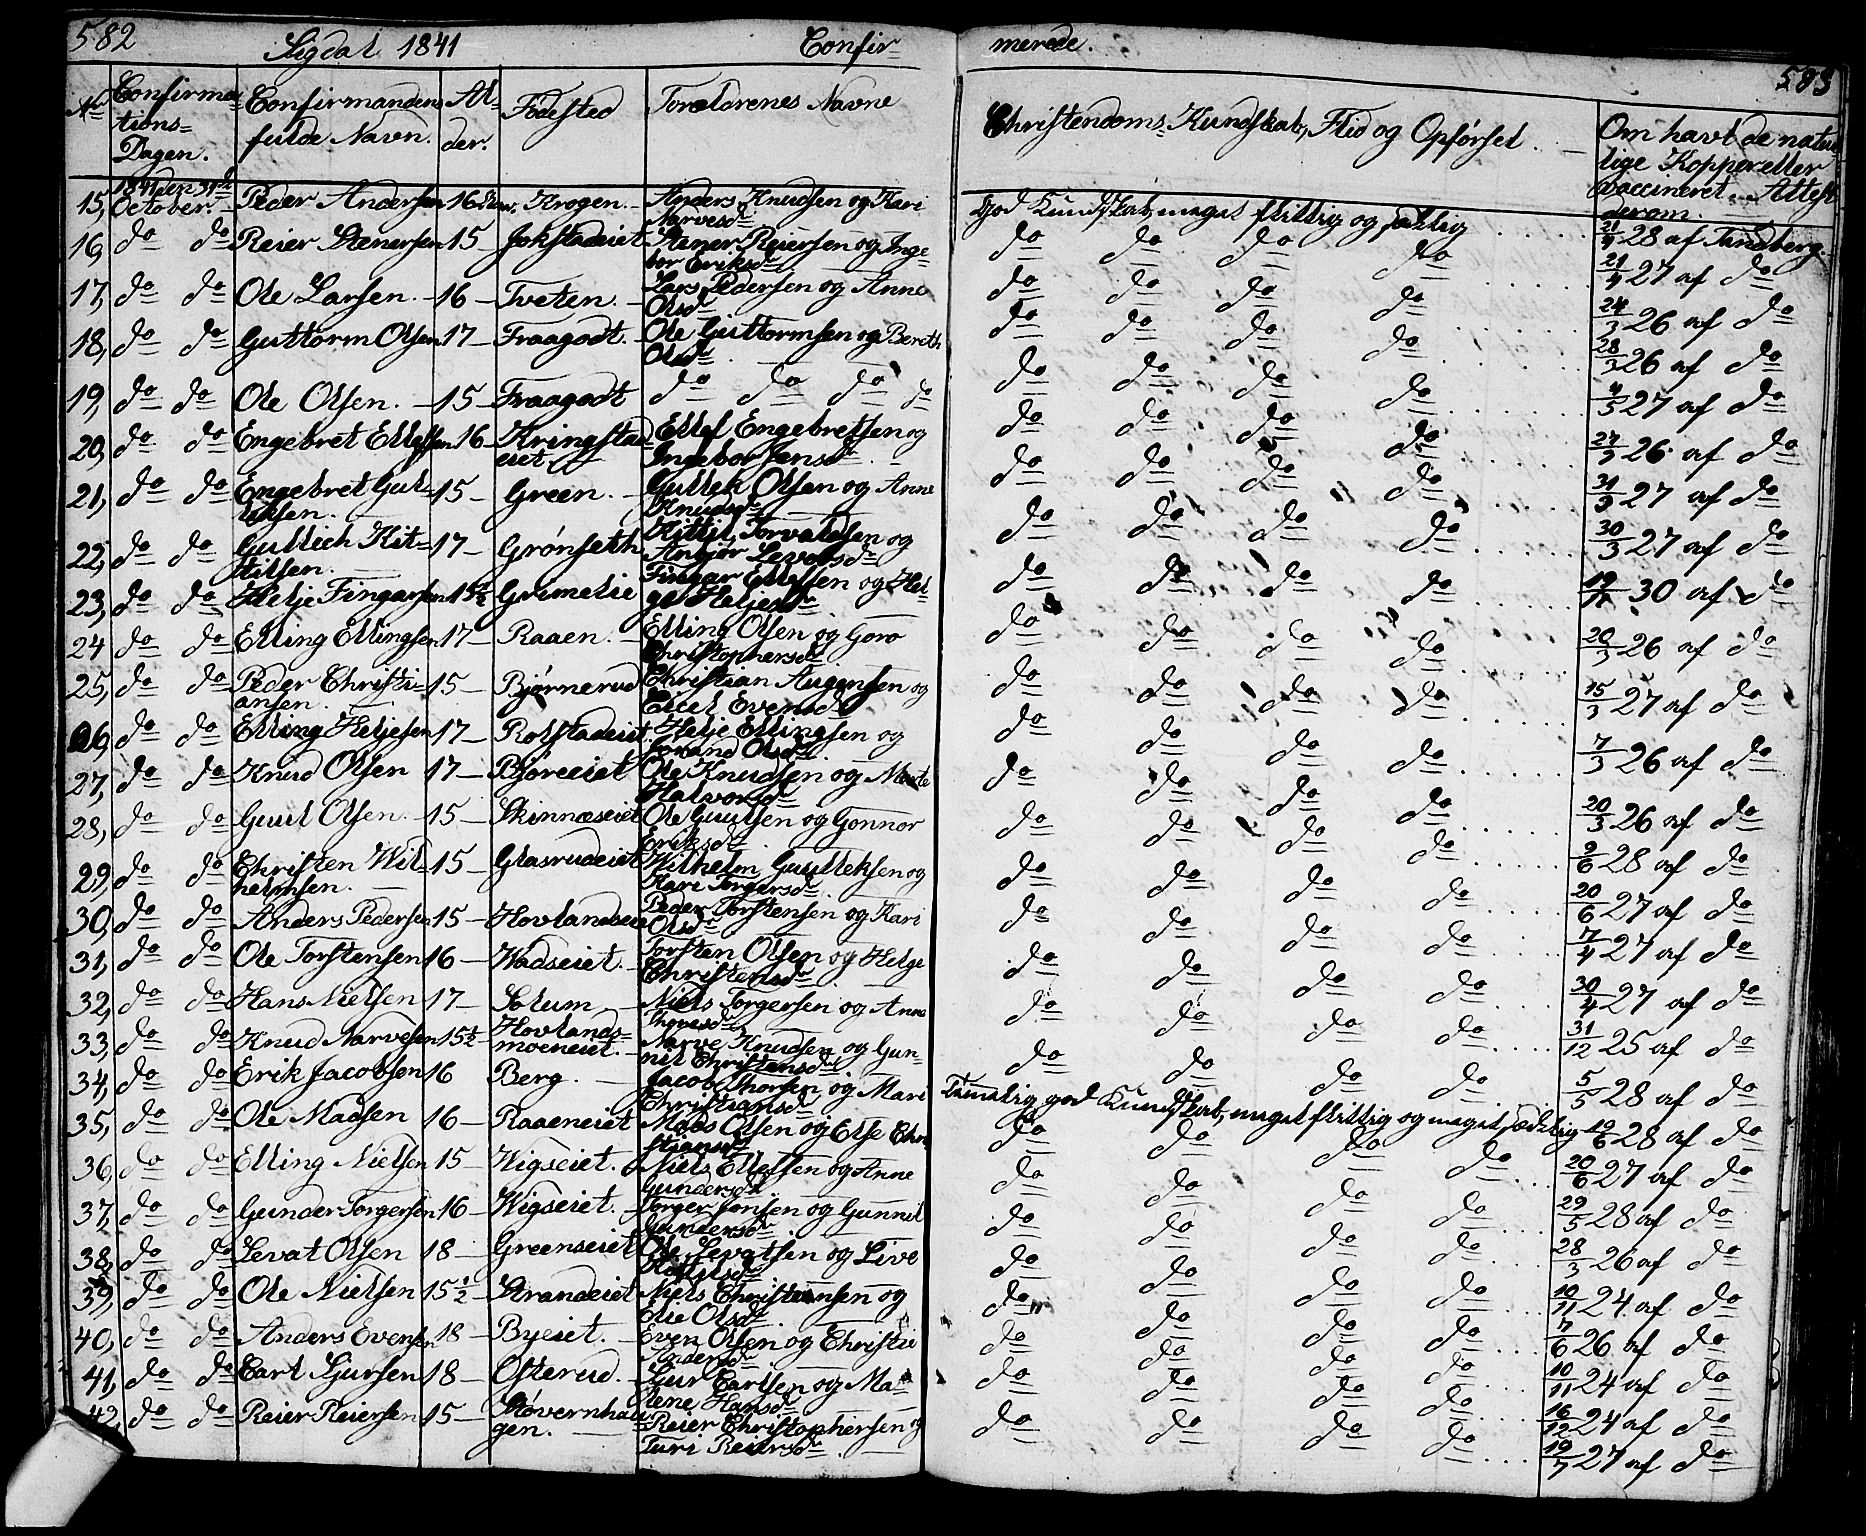 582
Sigdal 1841 Confir=
merede.
583
Nr Confirma=tions=Dagen. Confirmandens fulde Navn. Al=der. Fødested Forældrenes Navne Christendoms Kundskab, Flid og Opførsel. Om havt de naturlige Kopper eller vaccineret. Attest derom.
15, 1841 den 31te October. Peder Andersen 16 Krogen. Anders Knudsen og Kari Narvesdr God Kundskab, meget flittig og sædelig 21/4 28 af Tandberg.
16, do do Reier Stenersen 15 Jokstadeiet Stener Reiersen og Ingebor Eriksdr do do do do 21/4 27 af do
17, do do Ole Larsen. 16 Tveten. Lars Pedersen og Anne Olsdr do do do do 24/3 26 af do
18, do do Guttorm Olsen 17 Fraagodt. Ole Guttormsen og Bereth Olsdr do do do do 28/3 26 af do
19, do do Ole Olsen. 15 Fraagodt do do do do do do do do 4/3 27 af do
20, do do Engebret Ellefsen 16 Kringstadeiet Ellef Engebretsen og Ingebor Jensdr do do do do 26 af do
21, do do Engebret Gulleksen. 15 Green. Gullek Olsen og Anne Knudsdr do do do do 31/3 27 af do
22, do do Gullich Kittilsen. 17 Grønseth Kittil Torvaldsen og Anbjør Levorsdr do do do do 30/3 27 af do
23, do do Helje Fingarsen 15 1/2 Grimelie Fingar Ellefsen og Helge Heljesdr do do do do 30 af do
24 do do Elling Ellingsen 17 Raaen. Elling Olsen og Goro Christophersdr do do do do 20/3 26 af do
25, do do Peder Christiansen. 15 Bjørnerud Christian Augensen og Cicel Evensdr do do do do 15/3 27 af do
26, do do Elling Heljesen 17 Rolfstadeiet Helje Ellingsen og Jorand Olsdr do do do do 7/3 26 af do
27, do do Knud Olsen 17 Bjøreeiet Ole Knudsen og Marte Halvorsdr do do do do 20/3 26 af do
28, do do Guul Olsen. 15 Skinnæseiet Ole Guulsen og Gonnor Eriksdr do do do do 2/6 28 af do
29, do do Christen Wilhelmsen. 15 Glasrudeiet Wilhelm Guulleksen og Kari Torgersdr do do do do 20/6 27 af do
30, do do Anders Pedersen 15 Hovlandseie Peder Torstensen og Kari Olsdr do do do do 7/4 27 af do
31, do do Ole Torstensen 16 Wadseiet Torsten Olsen og Helge Christensdr do do do do 30/4 27 af do
32, do do Hans Nielsen 17 Solum, Niels Torgersen og Anne Thoresdr do do do do 31/12 25 af do
33, do do Knud Narvesen 15 1/2 Hovlandsmoeneiet. Narve Knudsen og Gunnil Christensdr do do do do 5/5 28 af do
34, do do Erik Jacobsen 16 Berg. Jacob Thorsen og Mari Christiansdr Temmelig god Kundskab, meget flittig og meget sædelig 19/6 28 af do
35, do do Ole Madsen 16 Raaeneiet Mads Olsen og Else Christiansdr do do do do 20/6 27 af do
36, do do Elling Nielsen 15 Wigseiet. Niels Ellefsen og Anne Gundersdr do do do do 29/5 28 af do
37, do do Gunder Torgersen 16 Wigseiet. Torger Jonsen og Gunnil Gundersdr do do do do 28/3 26 af do
38, do do Levat Olsen 18 Greenseiet Ole Levatsen og Live do do do do 10/11 24 af do
39, do do Ole Nielsen 15 1/2 Strandeiet Niels Christensen og Elie Olsdr do do do do 7/6 26 af do
40, do do Anders Evensen 18 Byeiet. Even Olsen og Christie Andersdr do do do do 10/11 24 af do
41, do do Carl Gjursen 18 Osterud. Gjur Carlsen og Malene Hansdr do do do do 16/12 24 af do
42, do do Reier Reiersen 15 Støvernhaugen. Reier Christophersen og Turi Reiersdr do do do do 19/7 27 af do